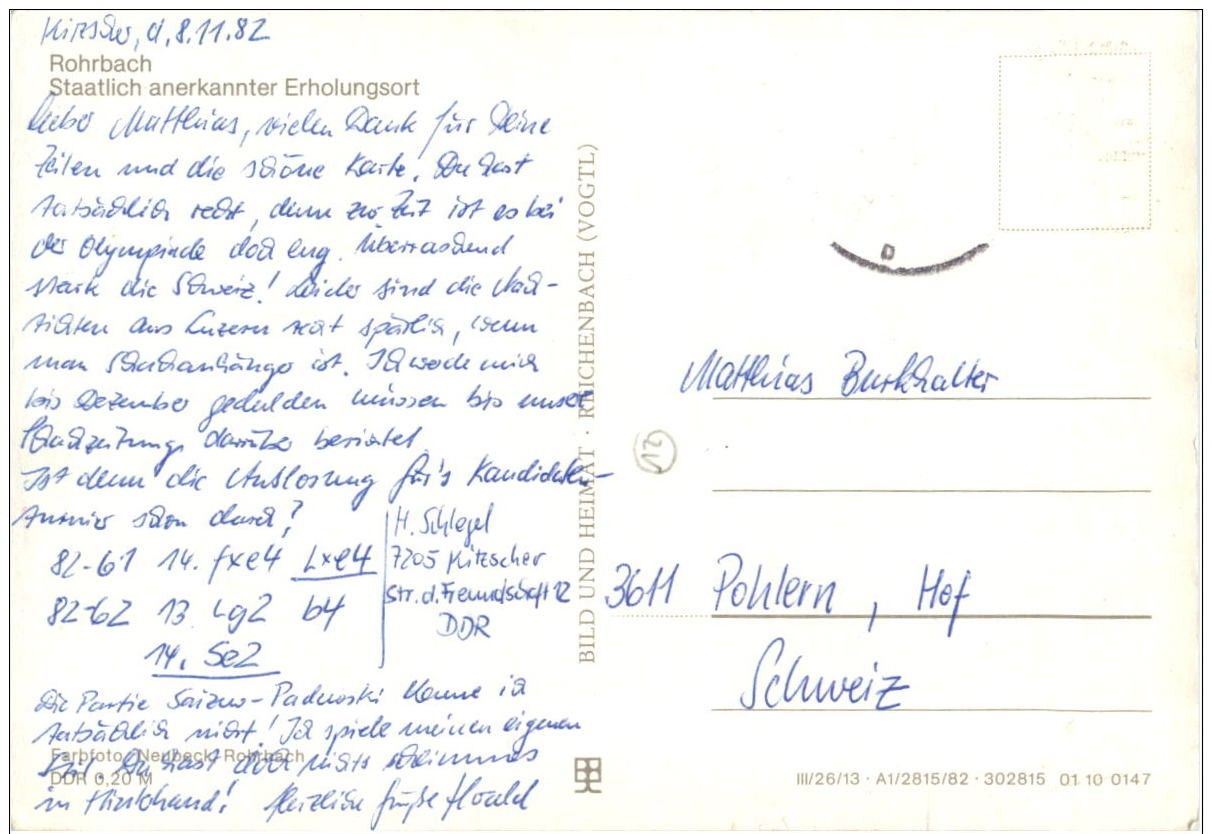 Kitzscher, d. 8.11.82
Rohrbach
Staatlich anerkannter Erholungsort
Lieber Matthias, vielen Dank für Deine
Zeilen und die schöne Karte. Du hast
tatsächlich recht, denn zur Zeit ist es bei
der Olympiade doch eng. Überraschend
stark die Schweiz! Leider sind die Nach-
richten aus Luzern recht spärlich, wenn
man Schachanhänger ist. Ich werde mich
bis Dezember gedulden müssen bis unsere
Schachzeitung darüber berichtet.
Ist denn die Auslosung für's Kandidaten-
turnier schon durch?
82-61 14. fxe4 Lxe4
82-62 13. Lg2 b4
14. Se2
H. Schlegel
7205 Kitzscher
Str. d. Freundschaft 12
DDR
Die Partie kenne ich
tatsächlich nicht! Ich spiele meinen eigenen
Du hast doch nichts schlimmes
in Hinterhand! Herzliche Grüße Harald
Farbfoto: Neubeck, Rohrbach
DDR 0,20 M
BILD UND HEIMAT · REICHENBACH (VOGTL)
12
Matthias Burkhalter
3611 Pohlern, Hof
Schweiz
III/26/13 · A1/2815/82 · 302815 01 10 0147